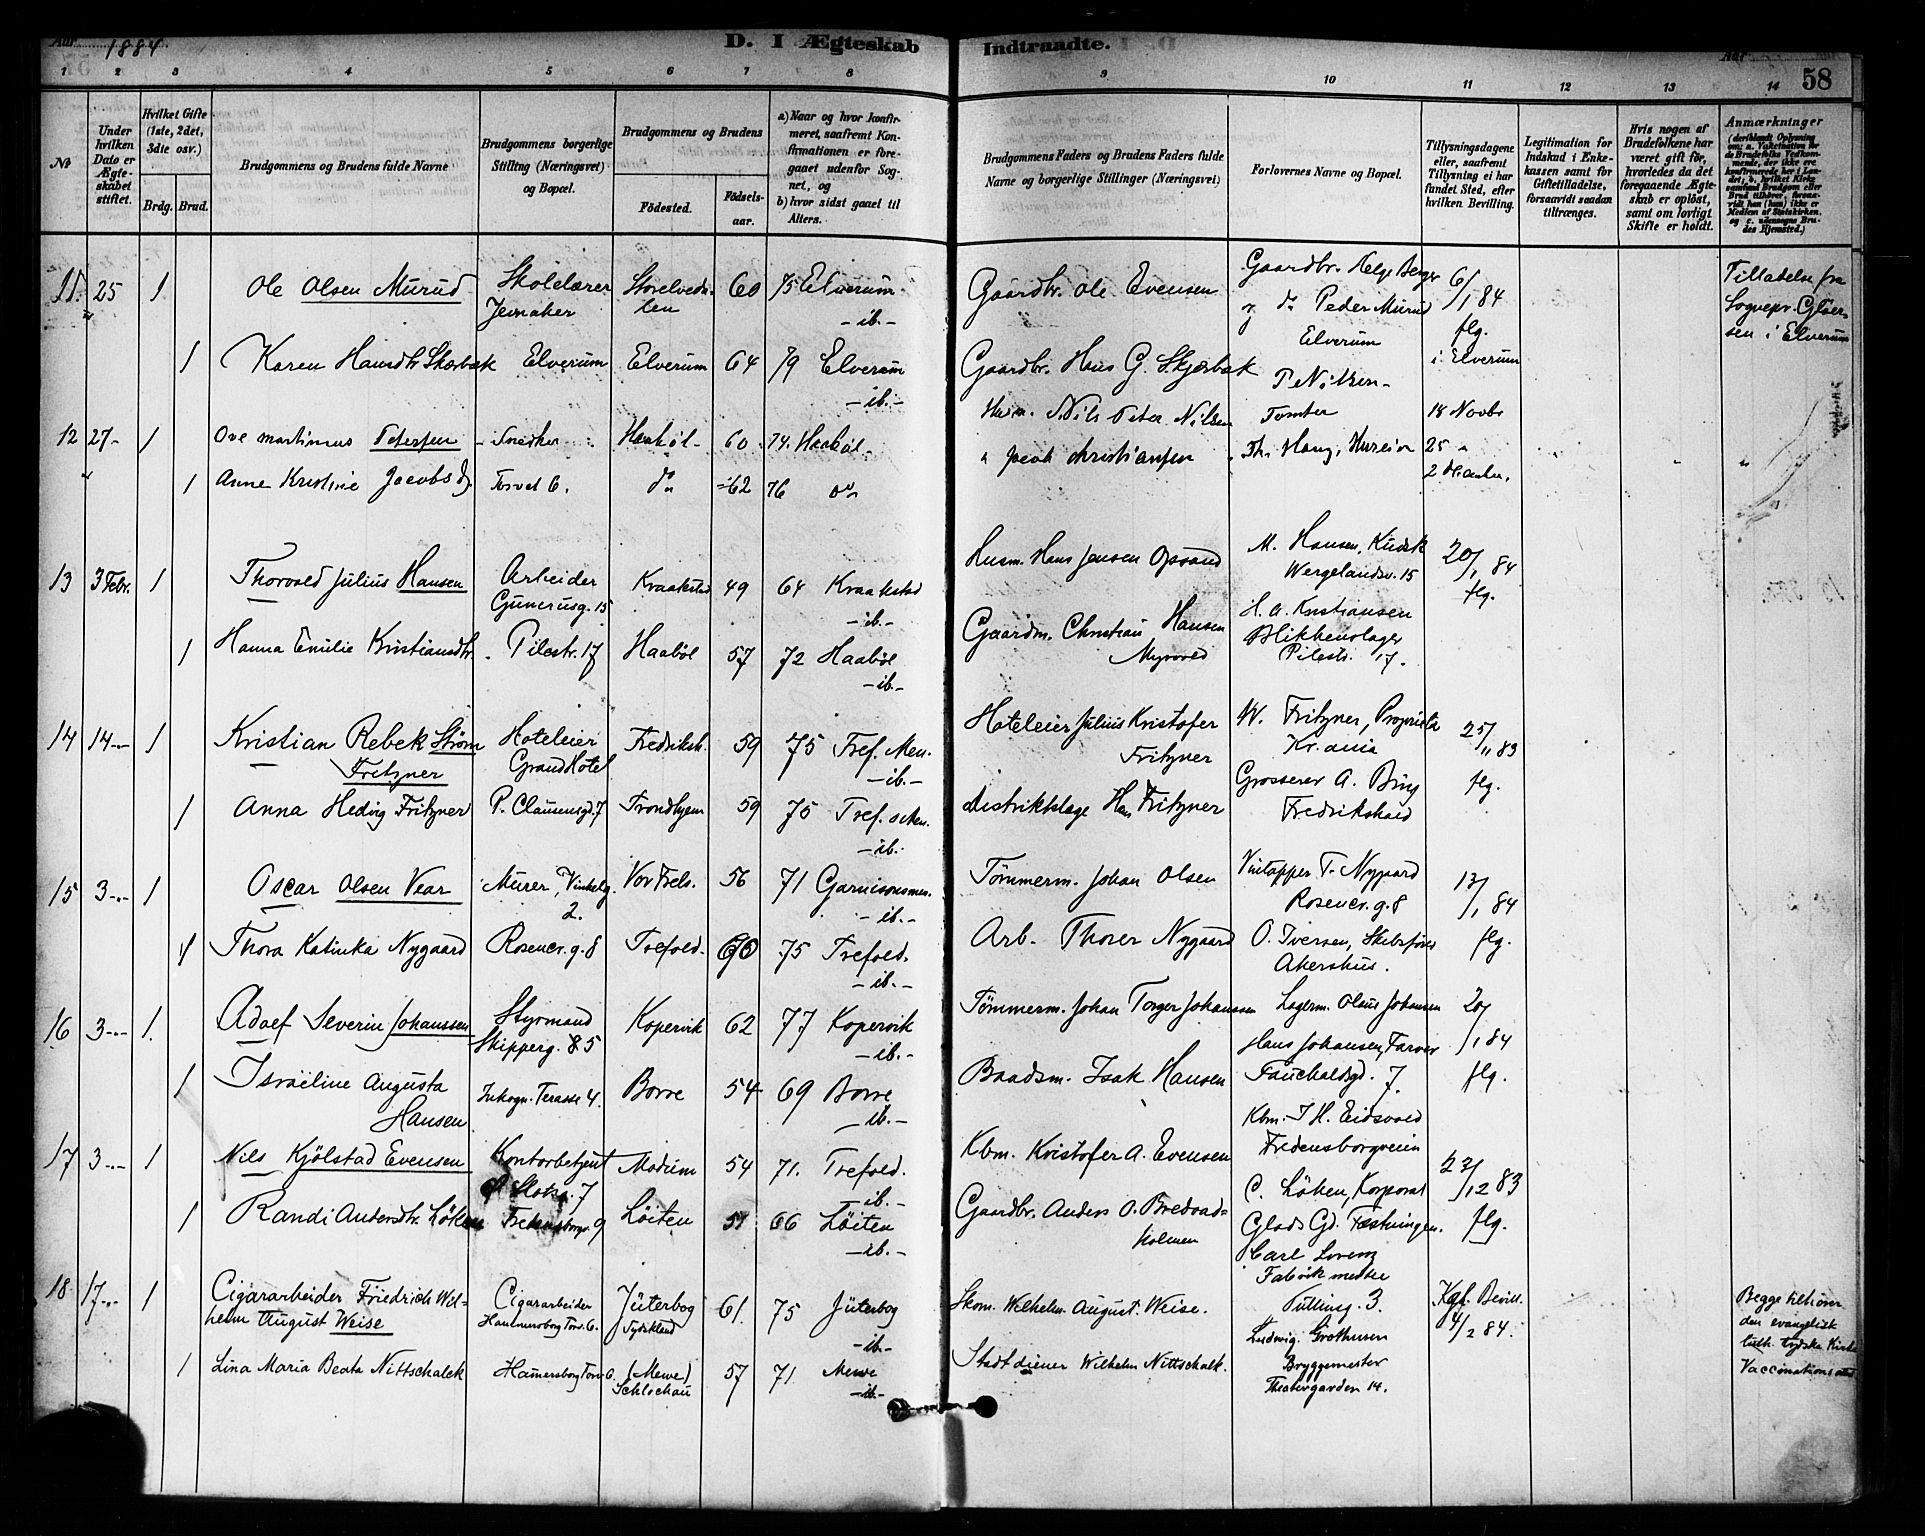 Aar 1884.
D. I Ægteskab Indtraadte.
Aar
58
1 2 3 4 5 6 7 8 9 10 11 12 13 14
No
Under hvilken Dato er Ægteskabet stiftet.
Hvilket Gifte (1ste, 2det, 3die osv.)
Brdg. Brud.
Brudgommens og Brudens fulde Navne
Brudgommens borgerlige Stilling (Næringsvei) og Bopæl.
Brudgommens og Brudens
Fødested. Fødselsaar.
a) Naar og hvor konfirmeret, saafremt Konfirmationen er foregaaet udenfor Sognet, og
b) hvor sidst gaaet til Alters.
Brudgommens Faders og Brudens Faders fulde Navne og borgerlige Stillinger (Næringsvei)
Forlovernes Navne og Bopæl.
Tillysningsdagene eller, saafremt Tillysning ei har fundet Sted, efter hvilken Bevilling.
Legitimation for Indskud i Enkekassen samt for Giftetilladelse, forsaavidt saadan tiltrænges.
Hvis nogen af Brudefolkene har været gift før, hvorledes da det foregaaende Ægteskab er opløst, samt om lovligt Skifte er holdt.
Anmærkninger
(deriblandt Oplysning om: a. Vaksination for de Brudefolks Vedkommende, der ikke ere konfirmerede her i Landet; b. hvilket Kirkesamfund Brudgom eller Brud tilhører, forsaavidt han (hun) ikke er Medlem af Statskirken, og c. udensogns Brudes Hjemsted.)
11. 25 1 Ole Olsen Murud Skolelærer Storelvedalen 60 75 Elverum Gaardbr. Ole Evensen Gaardbr. Helge Berger 6/1 84 Tilladelse fra
Jevnaker -ib.- og do Peder Murud flg. Sognepr. Gløersen i Elverum
Elverum
1 Karen Hansdtr. Skærbæk Elverum Elverum 64 79 Elverum Gaardbr. Hans G. Skjærbæk i Elverum
-ib.- P. Nilsen
12 27 1 Ove Martinius Petersen Snedker Haabøl 60 74 Haabøl Husm. Nils Peter Nilsen Tomter 18 Novbr
1 Anne Kristine Jacobsd. Torvet 6. do 62 76 do " Jacob Christiansen Th. Haug, 25 "
13 3 Febr. 1 Thorvald Julius Hansen Arbeider Kraakstad 49 64 Kraakstad Husm. Hans Jensen Opsand M. Hansen, Kudsk 20/1 84
Gunerusg. 15 -ib.- Wergelandsv. 15 flg.
1 Hanna Emilie Kristiansdtr. Pilestr. 17 Haabøl 57 72 Haabøl Gaardm. Christian Hansen H. A. Kristiansen
-ib.- Myrvold Blikkenslager
Pilestr. 17.
14 14 1 Kristian Rebek Strøm Hoteleier Fredriksh. 59 75 Tref. Men. Hoteleier Julius Kristofer W. Fritzner, Proprietær 25/11 83
Fritzner Grand Hotel -ib.- Fritzner Kr.ania
1 Anna Hedvig Fritzner P. Clausensgd. 7 Trondhjem 59 75 Tref. Distriktslæge Fritzner Grosserer A. flg.
-ib.- Fredrikshald
15 3 1 Oscar Olsen Vear Murer, Vinkelg. Vor Frels. 56 71 Garnisonsmen. Tømmerm. Johan Olsen Vintapper T. Nygaard 13/1 84
2. -ib.- Rosencr. g. 8
1 Thora Katinka Nygaard Rosencr. g. 8 Trefold. 60 75 Trefold. Arb. Thorer Nygaard O. Iversen, flg.
-ib.- Akershus.
16 3 1. Adolf Severin Johanssen Styrmand Kopervik 62 77 Kopervik Tømmerm. Johan Torger Johanssen Lagerm. Olaus Johansen 20/1 84
Skipperg. 85 -ib.- Hans Johansen, Farver
1 Israeline Augusta Inkogn. Terasse 4. Borre 54 69 Borre Baadsm. Isak Hansen Fauchaldsgd. 7. flg.
Hansen -ib.-
17 3 1 Nils Kjølstad Evensen Kontorbetjent Modum 54 71. Trefold. Kbm. Kristofer A. Evensen Kbm. I. H. Eidsvold
Slotsg. 7 -ib.- Fredensborgveien 23/12 83
1 Randi Andersdtr. Løken 9 Løiten 51 66 Løiten Gaardbr. Anders O. Bredvadholmen C. Løken, Korporal flg.
-ib.- Glads Gd. Fæstningen.
18 17 1 Cigararbeider Friedrich Wilhelm August Weise Cigararbeider Jüterbog 61. 75 Jüterbog Skom. Wilhelm August Weise. Carl Lorenz Kgl. Bevill. Begge tilhører
Hammersborg Torv 6. Tydskland -ib.- Fabrikmester 4/2 84. den evangelisk
Pultinsg. 3. luth. tydske Kirke
1 Lina Maria Beata Nittschalck Hamersborg Torv 6. (Mewe) 57 71 Mewe Stadtdiener Wilhelm Nittschalk. Ludwig Grothusen Vaccinationsatt
Schlochau -ib.- Bryggemester
Theatergarden 14.